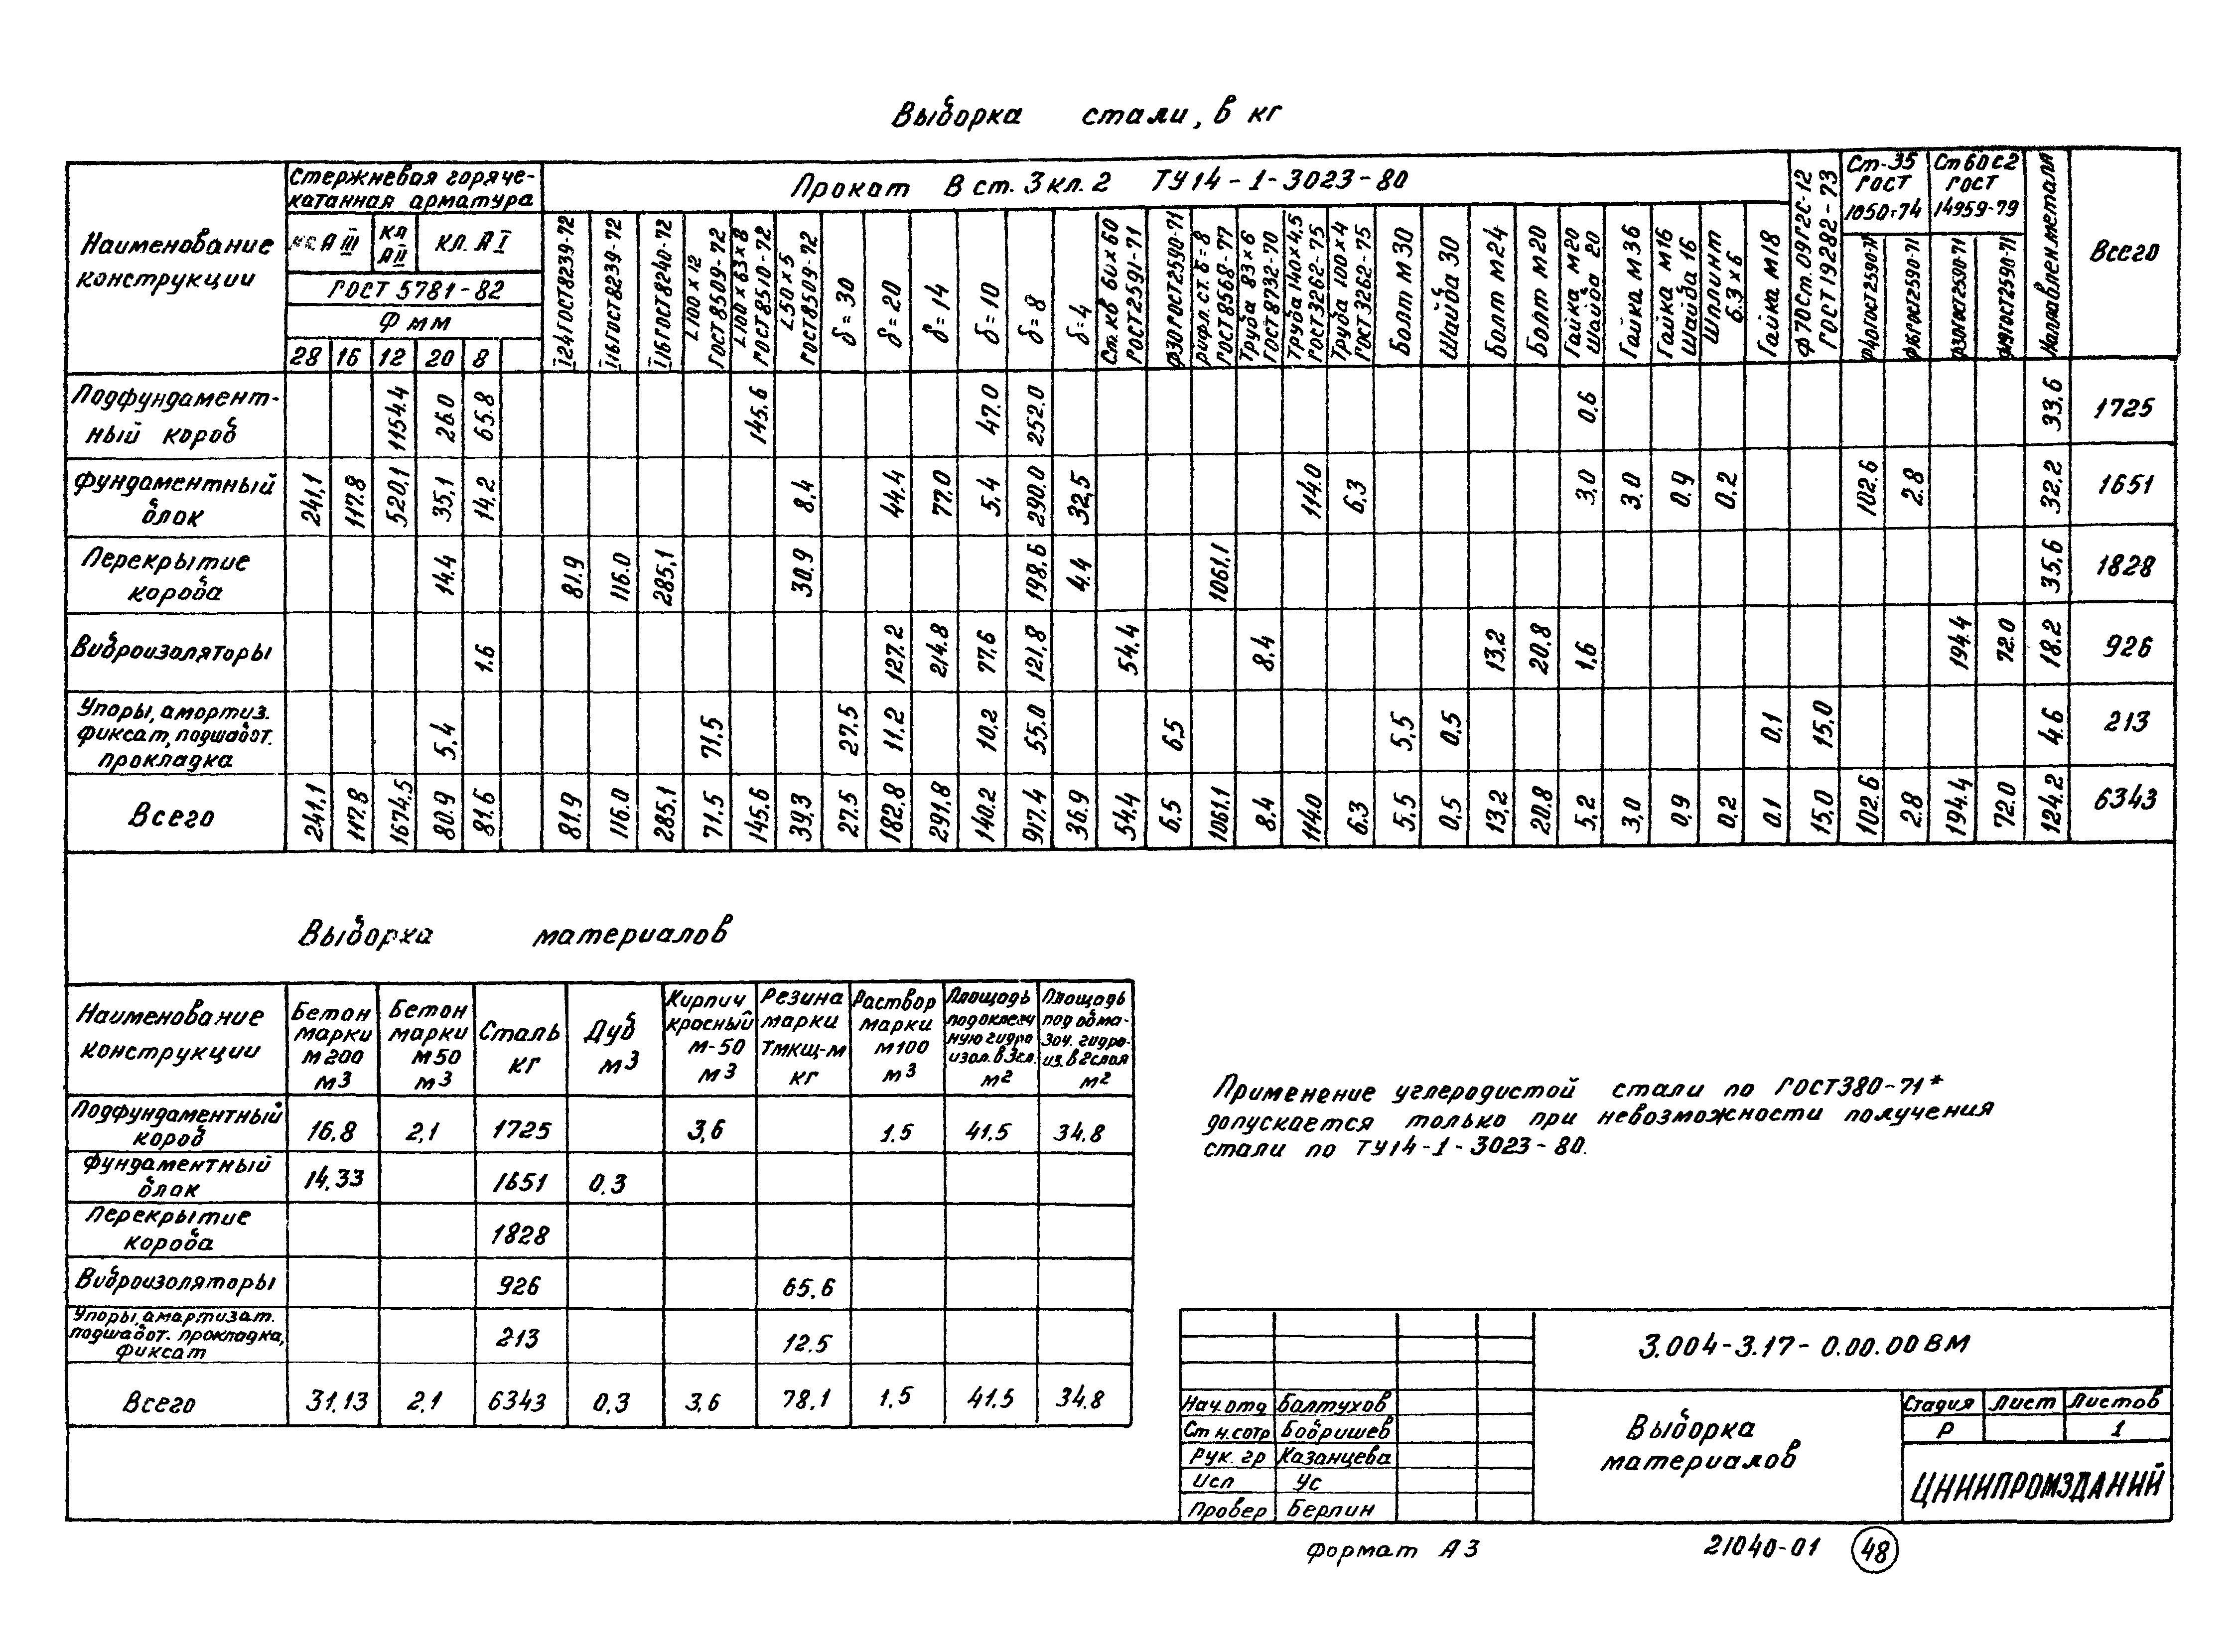 Выборка стали, в кг
Наименование конструкции
Стержневая горяче-
катанная арматура
кл. А III
кл А II
кл. А I
ГОСТ 5781-82
Ф мм
28 16 12 20 8
Прокат В ст. 3 кл. 2 ТУ14-1-3023-80
I24 ГОСТ 8239-72
I16 ГОСТ 8239-72
[16 ГОСТ 8240-72
L100×12 ГОСТ 8509-72
L100×63×8 ГОСТ 8510-72
L50×5 ГОСТ 8509-72
δ=30
δ=20
δ=14
δ=10
δ=8
δ=4
Ст. кв 60×60 ГОСТ 2591-71
Ф30 ГОСТ 2590-71
рифл. ст. δ=8 ГОСТ 8568-77
Труба 83×6 ГОСТ 8732-70
Труба 140×4,5 ГОСТ 3262-75
Труба 100×4 ГОСТ 3262-75
Болт М30
Шайба 30
Болт М24
Болт М20
Гайка М20 Шайба 20
Гайка М36
Гайка М16 Шайба 16
Шплинт 6.3×6
Гайка М18
Ф70 ст. 09Г2С-12 ГОСТ 19282-73
Ст-35 ГОСТ 1050-74
Ф40 ГОСТ 2590-71
Ф16 ГОСТ 2590-71
Ст 60С2 ГОСТ 14959-79
Ф30 ГОСТ 2590-71
Ф19 ГОСТ 2590-71
Наплавлен. метал
Всего
Подфундамент-
ный короб 1154.4 26.0 65.8 145.6 47.0 252.0 0.6 33.6 1725
Фундаментный
блок 241,1 117.8 520,1 35,1 14,2 8,4 44.4 77.0 5.4 290.0 32,5 114.0 6,3 3,0 3.0 0.9 0.2 102.6 2.8 32.2 1651
Перекрытие
короба 14.4 81.9 116.0 285,1 30.9 198.6 4.4 1061.1 35.6 1828
Виброизоляторы 1.6 127.2 214.8 77.6 121.8 54.4 8.4 13.2 20.8 1.6 194.4 72.0 18.2 926
Упоры, амортиз.
фиксат, подшабот.
прокладка 5.4 71.5 27.5 11.2 10.2 55.0 6.5 5.5 0.5 0.1 15.0 4.6 213
Всего 241.1 117.8 1674,5 80.9 81.6 81.9 116.0 285.1 71.5 145.6 39,3 27.5 182.8 291.8 140.2 917.4 36.9 54.4 6.5 1061.1 8.4 114.0 6.3 5.5 0.5 13,2 20.8 5,2 3,0 0,9 0.2 0.1 15,0 102.6 2.8 194.4 72.0 124.2 6343
Выборка материалов
Наименование конструкции
Бетон марки М200 м3
Бетон марки М50 м3
Сталь кг
Дуб м3
Кирпич красный М-50 м3
Резина марки ТМКЩ-М кг
Раствор марки М100 м3
Площадь под оклееч ную гидро изол. в 3 сл. м2
Площадь под обма- зоч. гидро- из. в 2 слоя м2
Подфундаментный
короб 16,8 2,1 1725 3,6 1.5 41.5 34.8
Фундаментный
блок 14,33 1651 0.3
Перекрытие
короба 1828
Виброизоляторы 926 65.6
Упоры, амартизат.
подшабот. прокладка,
фиксат 213 12.5
Всего 31.13 2.1 6343 0.3 3,6 78,1 1.5 41.5 34.8
Применение углеродистой стали по ГОСТ380-71*
допускается только при невозможности получения
стали по ТУ14-1-3023-80.
3.004-3.17-0.00.00 ВМ
Нач. отд Балтухов
Ст н. сотр Бобришев
Рук. гр Казанцева
Исп Ус
Провер Берлин
Выборка
материалов
Стадия Лист Листов
Р 1
ЦНИИПРОМЗДАНИЙ
Формат А3 21040-01 48